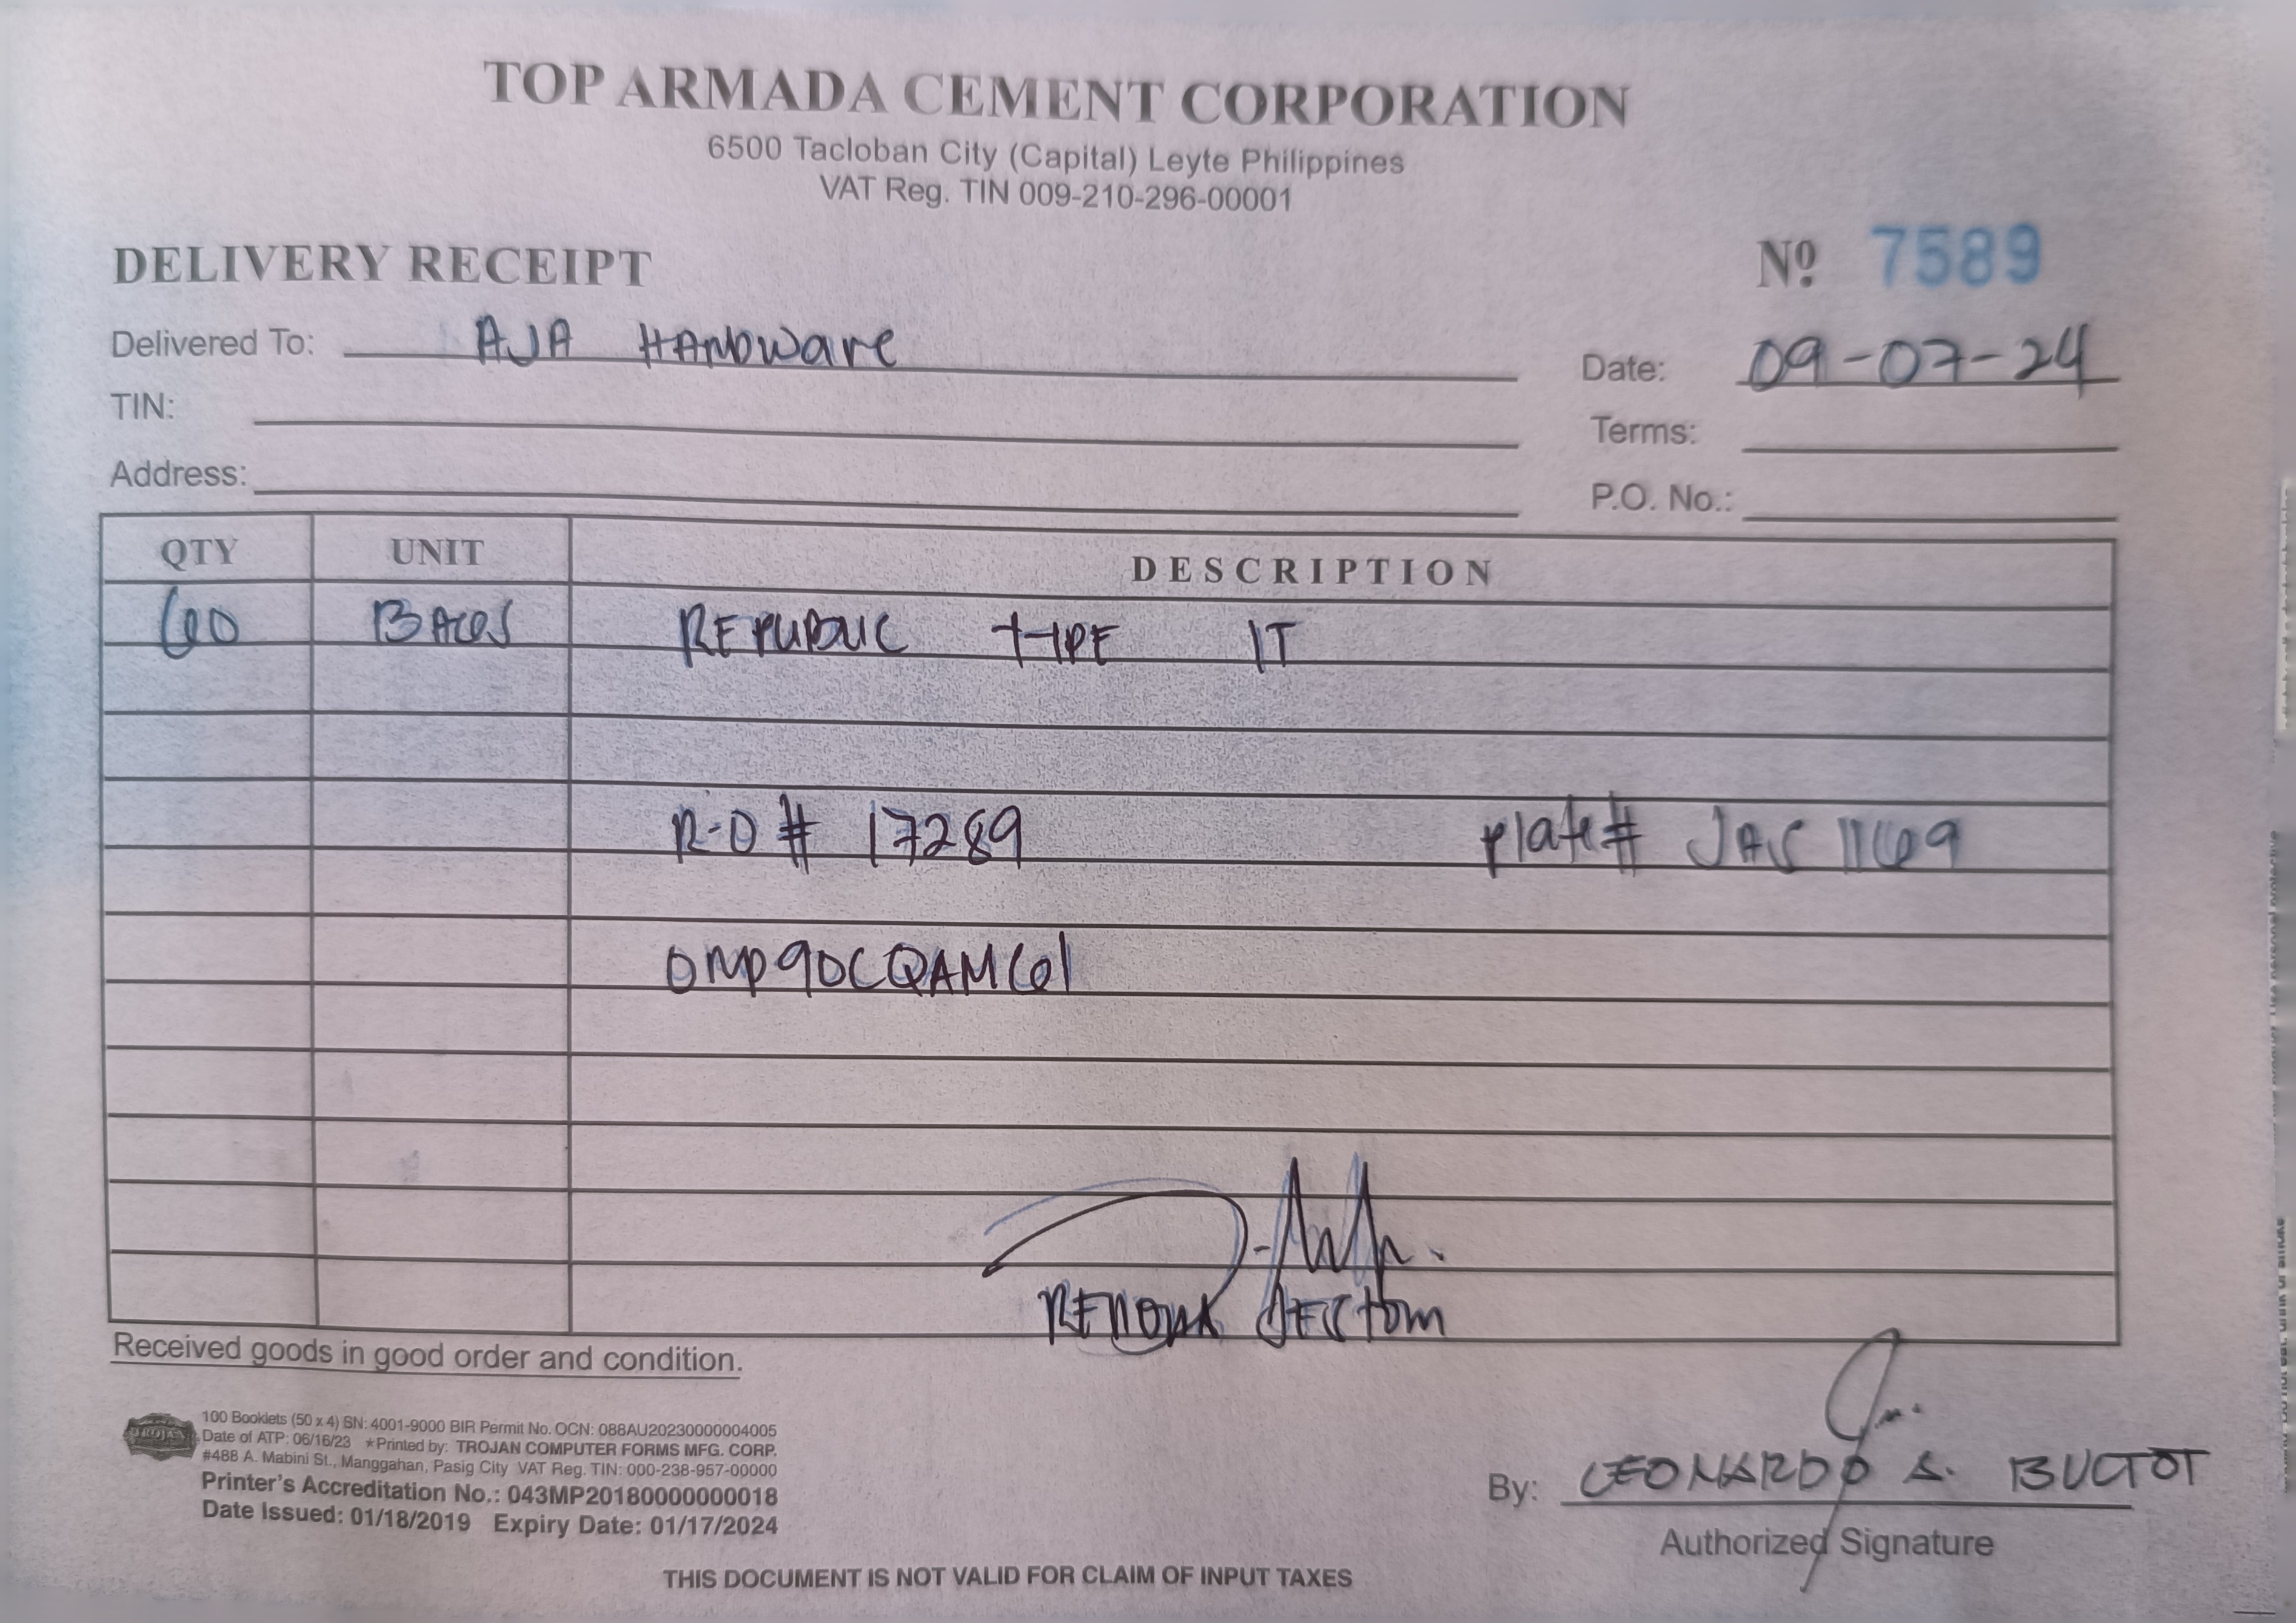 TOP ARMADA CEMENT CORPORATION
6500 Tacloban City (Capital) Leyte Philippines
VAT Reg. TIN 009-210-296-00001
DELIVERY RECEIPT
Nº 7589
Delivered To: AJA HARDware
Date: 09-07-24
TIN:
Terms:
Address:
P.O. No.:
QTY UNIT DESCRIPTION
60 BAGS REPUBLIC TYPE 1T
R-O # 17289 plate# JAS 1169
0MP90CQAM61
Received goods in good order and condition.
100 Booklets (50 x 4) SN: 4001-9000 BIR Permit No. OCN: 088AU20230000004005
Date of ATP: 06/16/23 ★Printed by: TROJAN COMPUTER FORMS MFG. CORP.
TROJAN
#488 A. Mabini St., Manggahan, Pasig City VAT Reg. TIN: 000-238-957-00000
Printer's Accreditation No.: 043MP20180000000018
Date Issued: 01/18/2019 Expiry Date: 01/17/2024
By: LEONARDO S. BUCTOT
Authorized Signature
THIS DOCUMENT IS NOT VALID FOR CLAIM OF INPUT TAXES